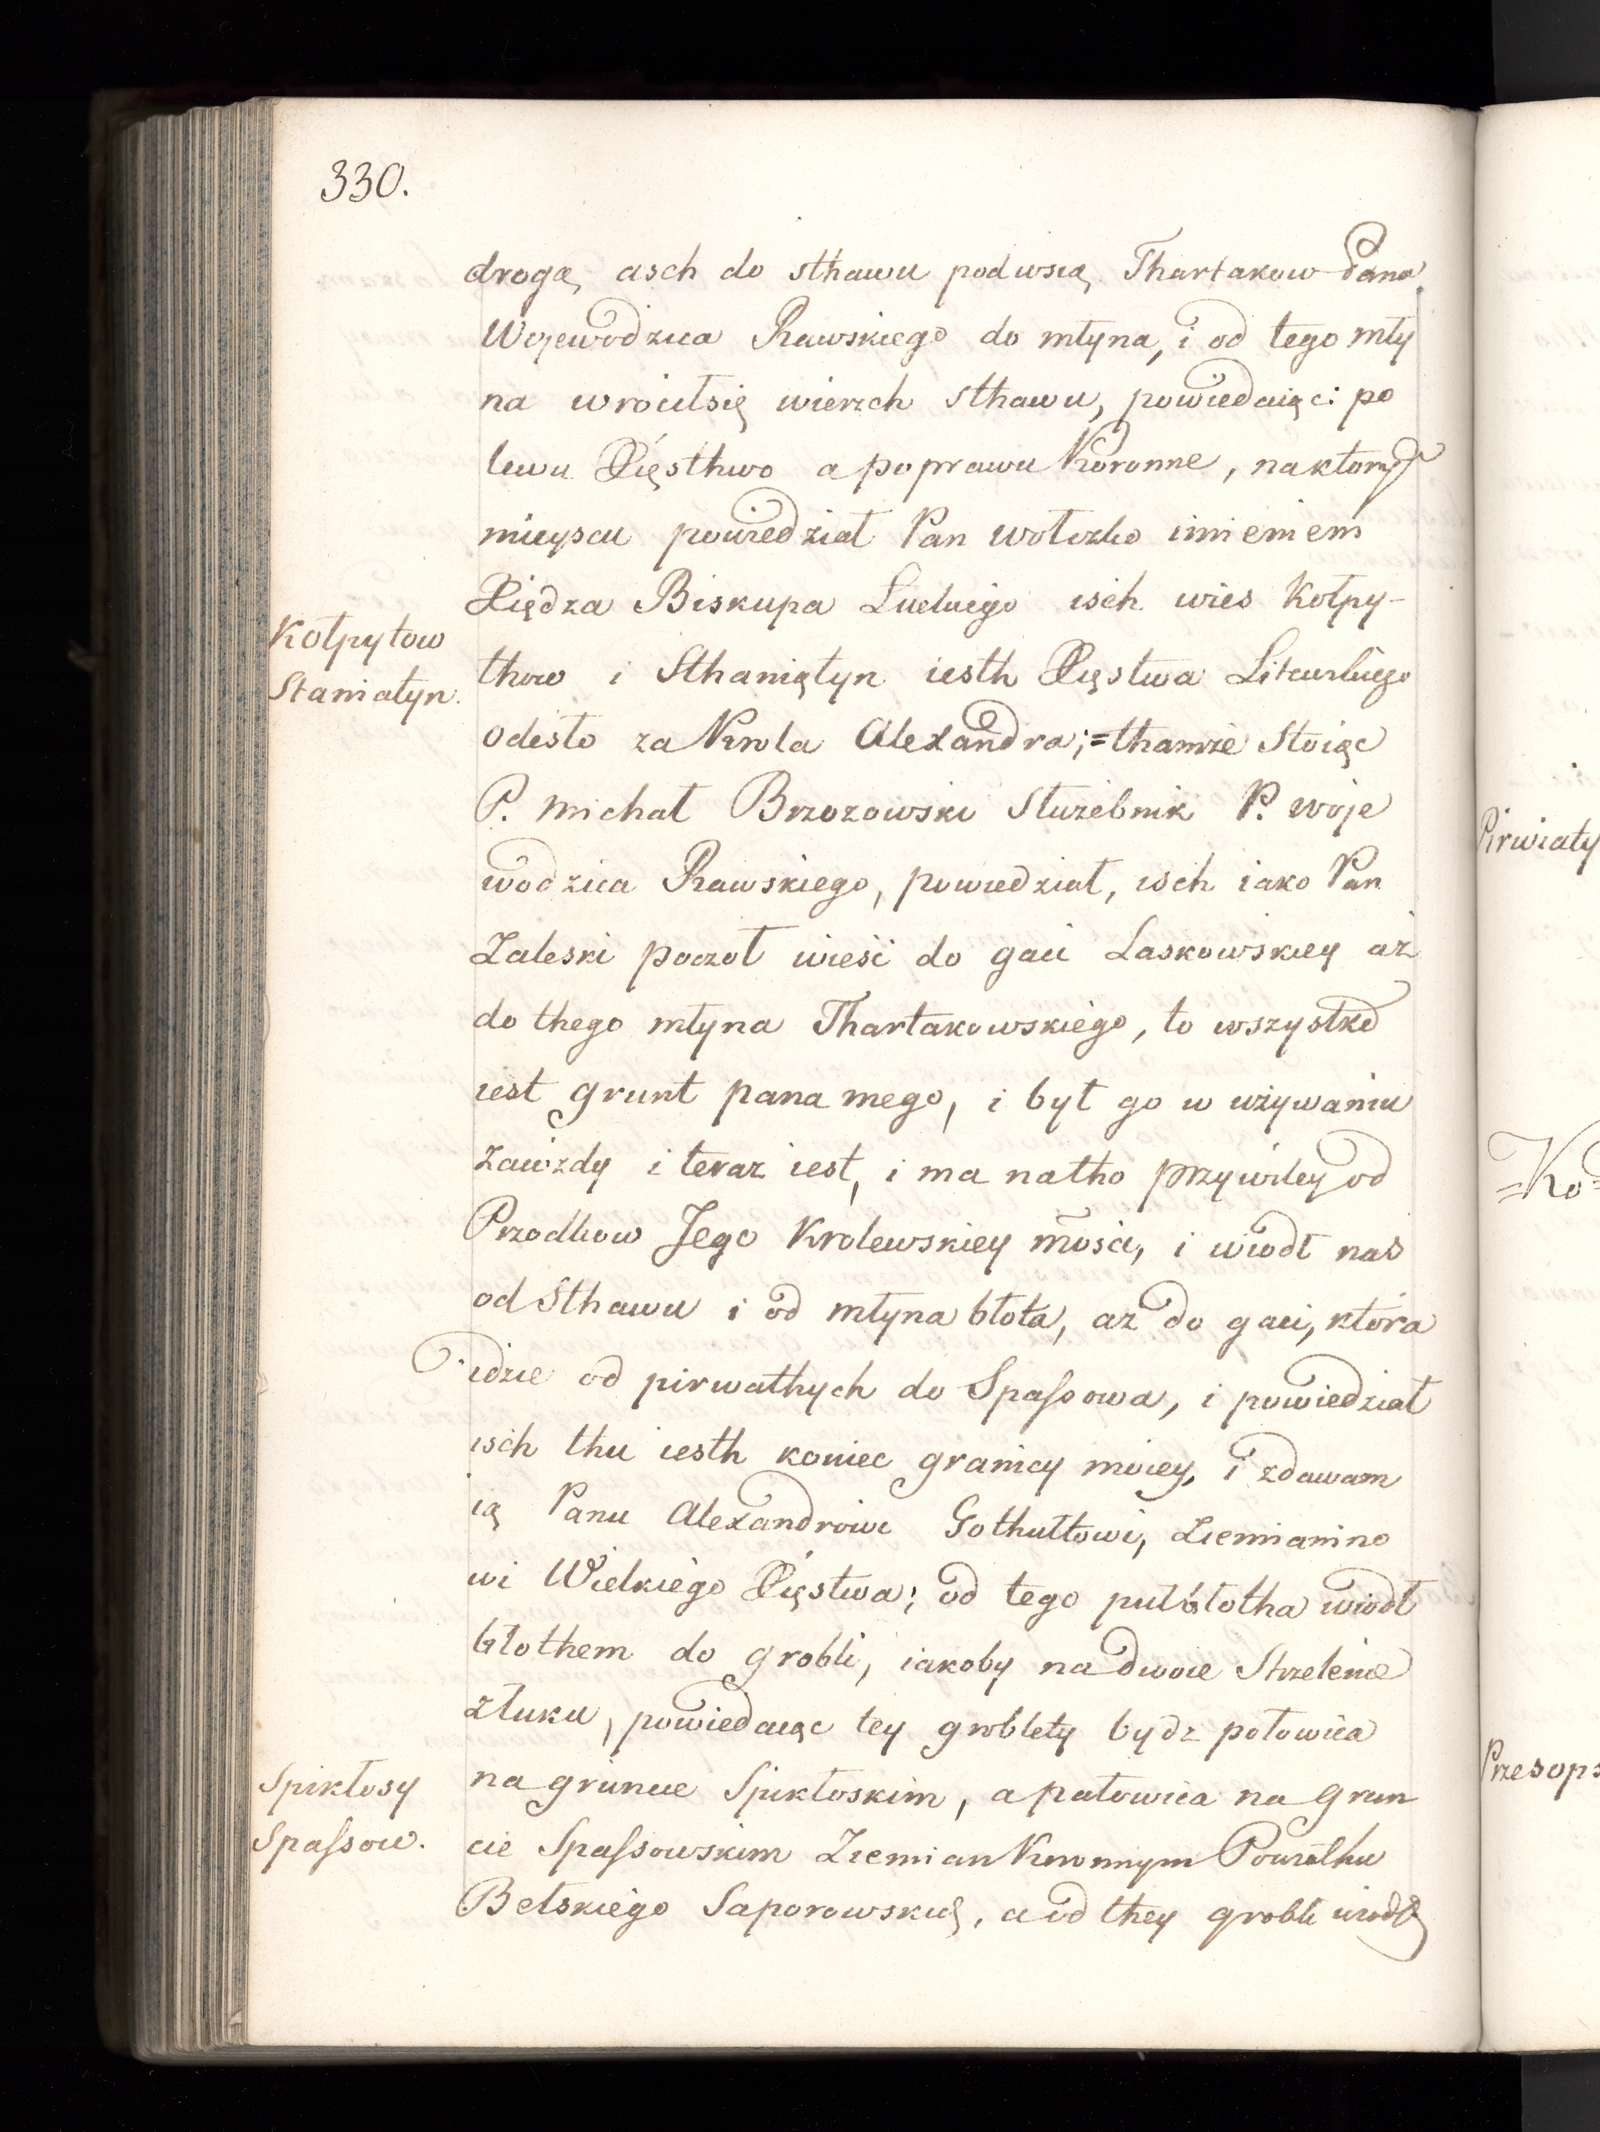 330.
drogą, asch do sthawu pod wsią Thartakow Pana
Wojewodzica Rawskiego do młyna, i od tego mły
na wrócił się wierzch sthawu, powiedaiąc: po
lewu Xięsthwo a poprawu Koronne, na którym
mieyscu powiedział Pan Wołczko imieniem
Xiędza Biskupa Luckiego isch wies Kołpy-
Kołpytow
thow i Sthaniątyn iesth Xięstwa Litewskiego
Staniatyn.
odesło za Krola Alexandra; = thamże Stoiąc
P. Michał Brzozowski Służebnik P. Woje
wodzica Rawskiego, powiedział, isch iako Pan
Zaleski poczoł wieść do gaci Laskowskiey aż
do thego młyna Thartakowskiego, to wszystko
iest grunt pana mego, i był go w używaniu
zawżdy i teraz iest, i ma natho przywiley od
Przodkow Jego Krolewskiey mości, i wiodł nas
od Sthawu i od młyna błota, aż do gaci, która
idzie od pirwathych do Spaſsowa, i powiedział
isch thu iesth koniec granicy moiey, i zdawam
ią Panu Alexandrowi Gothułtowi, Ziemianino
wi Wielkiego Xięstwa; od tego puł błotha wiodł
błothem do grobli, iakoby na dwoie Strzelenie
z łuku, powiedaiąc tey groblety bydz połowica
Spikłosy
na gruncie Spikłoskim, a połowica na grun
Spaſsow.
cie Spaſsowskim Ziemian Koronnym Powiathu
Bełskiego Saporowskich, a od they grobli wiodł
Pirwiaty
Ko
Przesops